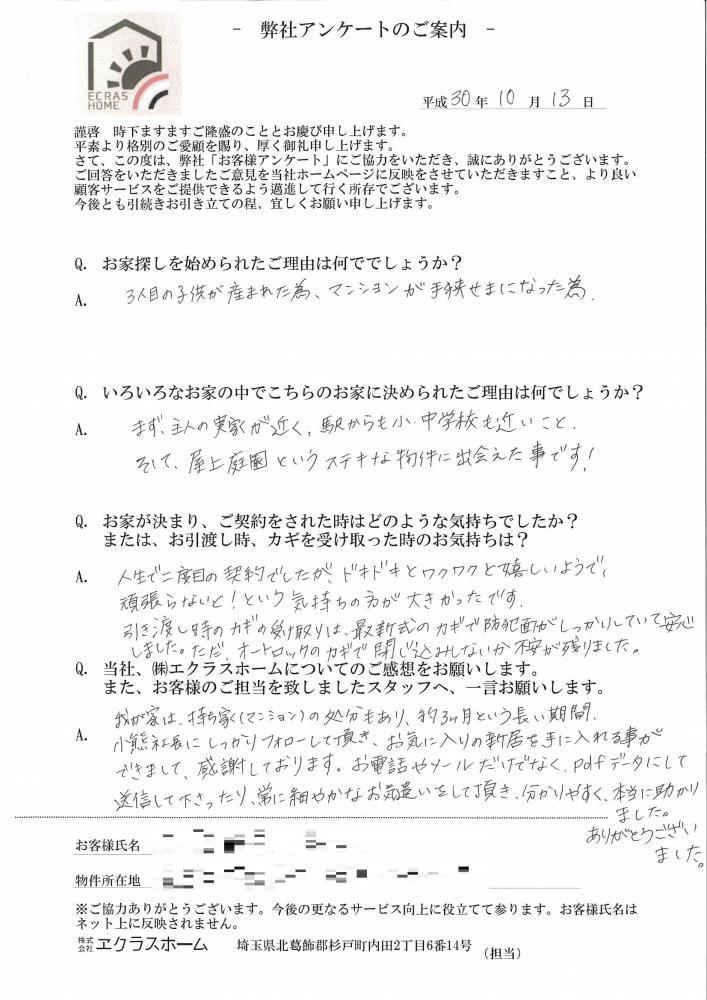 - 弊社アンケートのご案内 -
ECRAS
HOME
平成 30 年 10 月 13 日
謹啓　時下ますますご隆盛のこととお慶び申し上げます。
平素より格別のご愛顧を賜り、厚く御礼申し上げます。
さて、この度は、弊社「お客様アンケート」にご協力をいただき、誠にありがとうございます。
ご回答をいただきましたご意見を当社ホームページに反映をさせていただきますこと、より良い
顧客サービスをご提供できるよう邁進して行く所存でございます。
今後とも引続きお引き立ての程、宜しくお願い申し上げます。
Q. お家探しを始められたご理由は何ででしょうか？
A. 3人目の子供が産まれた為、マンションが手狭せまになった為.
Q. いろいろなお家の中でこちらのお家に決められたご理由は何でしょうか？
A. まず、主人の実家が近く、駅からも小・中学校も近いこと.
そして、屋上庭園というステキな物件に出会えた事です!
Q. お家が決まり、ご契約をされた時はどのような気持ちでしたか？
または、お引渡し時、カギを受け取った時のお気持ちは？
A. 人生で二度目の契約でしたが、ドキドキとワクワクと嬉しいようで、
頑張らないと!という気持ちの方が大きかったです.
引き渡し時のカギの受け取りは、最新式のカギで防犯面がしっかりしていて安心
しました。ただ、オートロックのカギで閉じ込みしないか不安が残りました。
Q. 当社、㈱エクラスホームについてのご感想をお願いします。
また、お客様のご担当を致しましたスタッフへ、一言お願いします。
A. 我が家は、持ち家(マンション)の処分もあり、約3ヶ月という長い期間、
小熊社長にしっかりフォローして頂き、お気に入りの新居を手に入れる事が
できまして、感謝しております。お電話やメールだけでなく、pdfデータにして
送信して下さったり、常に細やかなお気遣いをして頂き、分かりやすく、本当に助かり
ました。
ありがとうござい
ました。
お客様氏名
物件所在地
※ご協力ありがとうございます。今後の更なるサービス向上に役立てて参ります。お客様氏名は
ネット上に反映されません。
株式会社 ヱクラスホーム　埼玉県北葛飾郡杉戸町内田2丁目6番14号　（担当）